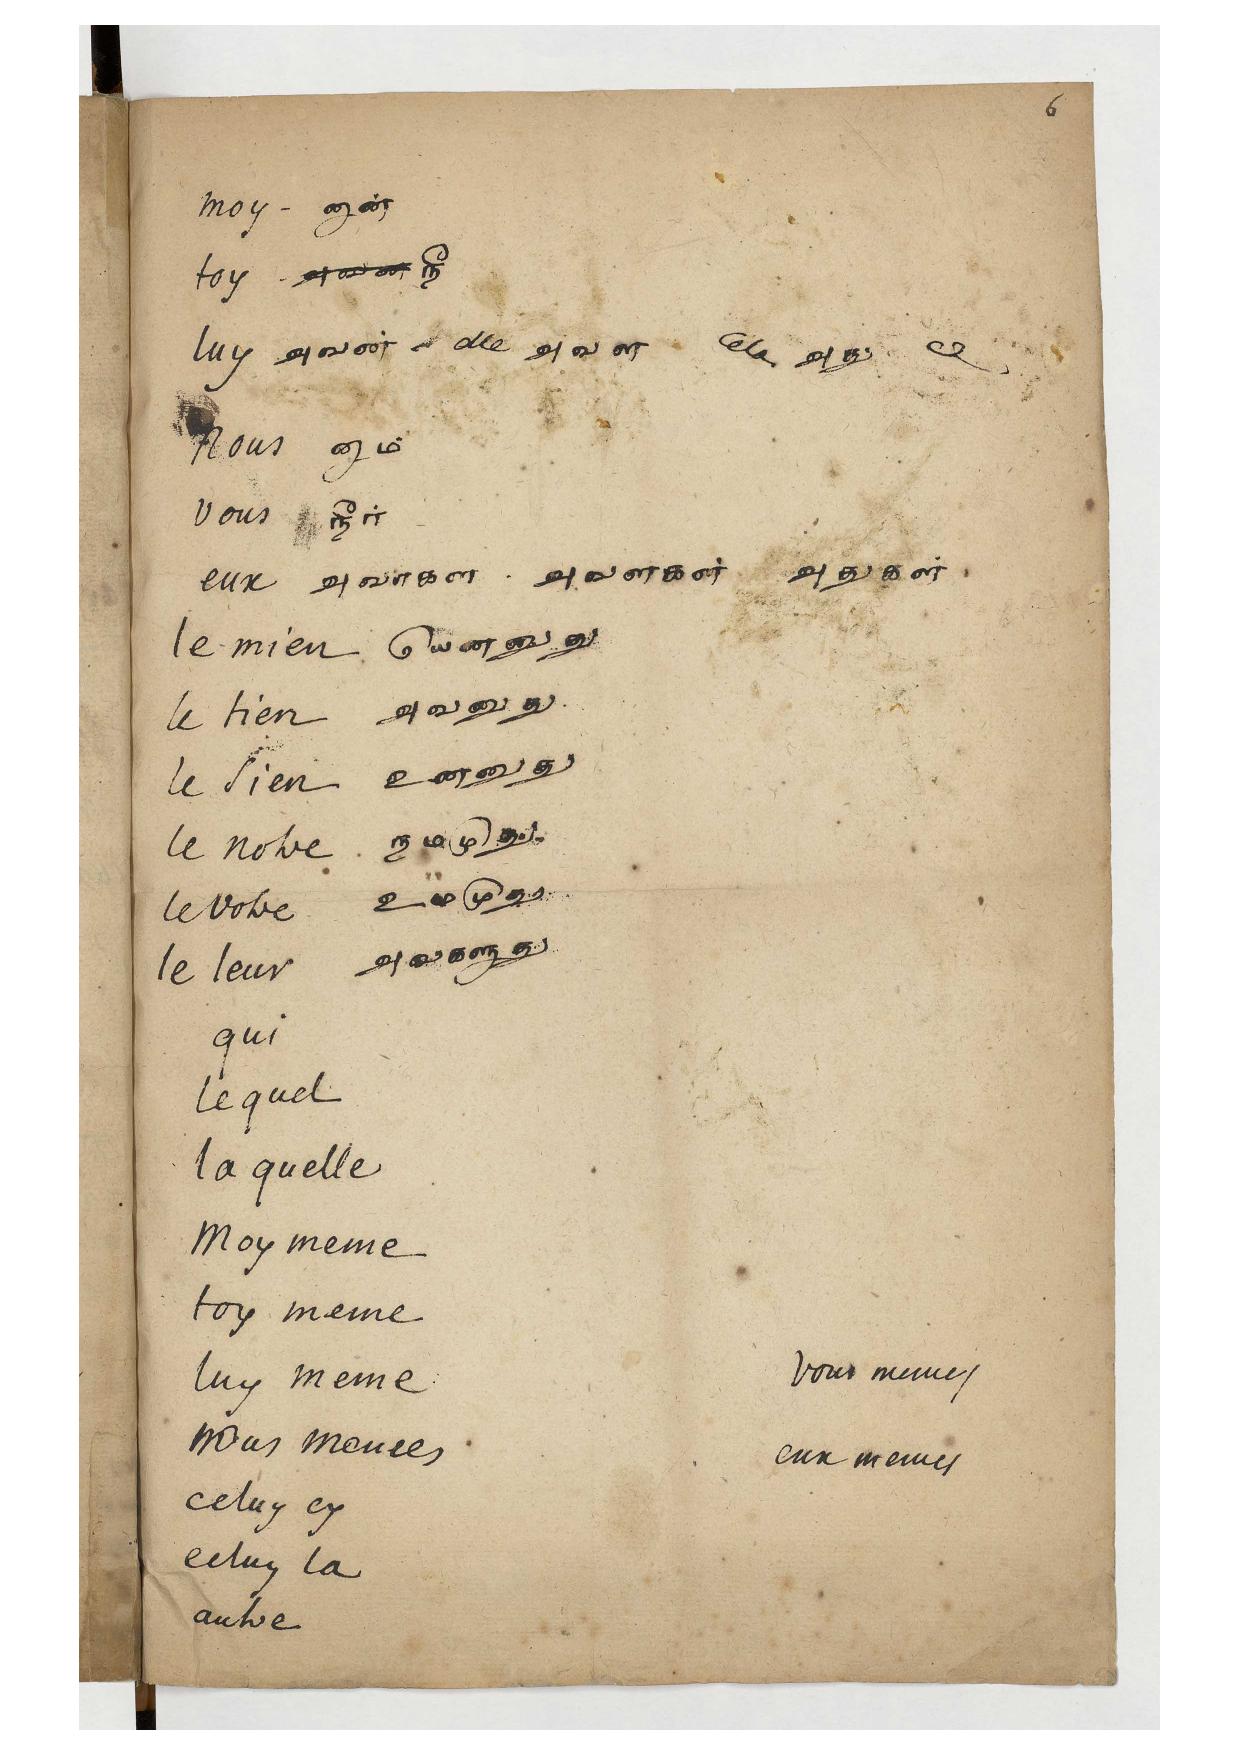 6
moy - னான்
toy - அவன நீ
luy அவண் - elle அவள cela அது
Nous னாம்
vous நீர்
eux அவாகள . அவளகள் அதுகள்
le mien யெனனுது
le tien அவனுது
le sien உனனுது
le notre நமமுது
le votre உமமுது
le leur அவகளுது
qui
lequel
la quelle
Moy meme
toy meme
luy meme vous memes
nous memes eux memes
celuy cy
celuy la
autre